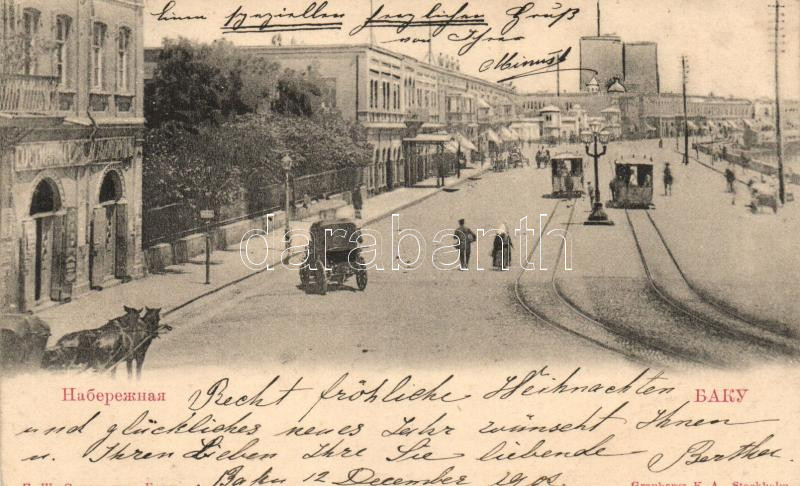 Einen speziellen herzlichen Gruß
von Ihrer
darabanth
Набережная
БАКУ
Recht fröhliche Weihnachten
und glückliches neues Jahr wünscht Ihnen
u. Ihren Lieben Ihre Sie liebende Bertha.
Baku 12 December
Granbergs K. A. Stockholm